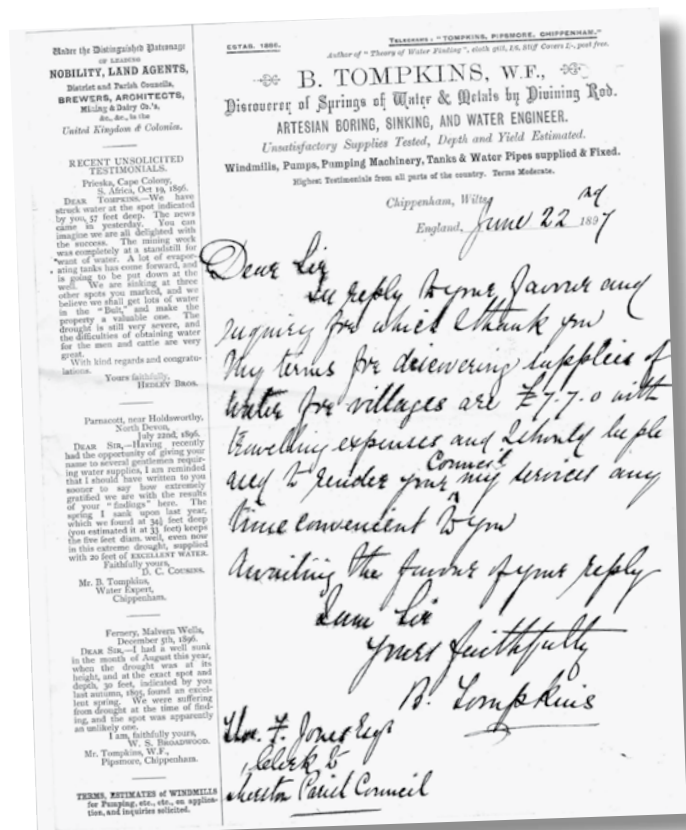 Under the Distinguished Patronage
OF LEADING
NOBILITY, LAND AGENTS,
District and Parish Councils,
BREWERS, ARCHITECTS,
Mining & Dairy Co.'s,
&c., &c., in the
United Kingdom & Colonies.
RECENT UNSOLICITED
TESTIMONIALS.
Prieska, Cape Colony,
S. Africa, Oct 19, 1896.
DEAR TOMPKINS.—We have
struck water at the spot indicated
by you, 57 feet deep. The news
came in yesterday. You can
imagine we are all delighted with
the success. The mining work
was completely at a standstill for
want of water. A lot of evapor-
ating tanks has come forward, and
is going to be put down at the
well. We are sinking at three
other spots you marked, and we
believe we shall get lots of water
in the "Bult," and make the
property a valuable one. The
drought is still very severe, and
the difficulties of obtaining water
for the men and cattle are very
great.
With kind regards and congratu-
lations.
Yours faithfully,
HEDLEY BROS.
Parnacott, near Holdsworthy,
North Devon,
July 22nd, 1896.
DEAR SIR,—Having recently
had the opportunity of giving your
name to several gentlemen requir-
ing water supplies, I am reminded
that I should have written to you
sooner to say how extremely
gratified we are with the results
of your "findings" here. The
spring I sank upon last year,
which we found at 34½ feet deep
(you estimated it at 33 feet) keeps
the five feet diam. well, even now
in this extreme drought, supplied
with 20 feet of EXCELLENT WATER.
Faithfully yours,
D. C. COUSINS.
Mr. B. Tompkins,
Water Expert,
Chippenham.
Fernery, Malvern Wells,
December 5th, 1896.
DEAR SIR,—I had a well sunk
in the month of August this year,
when the drought was at its
height, and at the exact spot and
depth, 30 feet, indicated by you
last autumn, 1895, found an excel-
lent spring. We were suffering
from drought at the time of find-
ing, and the spot was apparently
an unlikely one.
I am, faithfully yours,
W. S. BROADWOOD.
Mr. Tompkins, W.F.,
Pipsmore, Chippenham.
TERMS, ESTIMATES of WINDMILLS
for Pumping, etc., etc., on applica-
tion, and inquiries solicited.
ESTAB. 1886.
TELEGRAMS: "TOMPKINS, PIPSMORE, CHIPPENHAM."
Author of "Theory of Water Finding", cloth gilt, Stiff Covers post free.
B. TOMPKINS, W.F.,
Discoverer of Springs of Water & Metals by Divining Rod.
ARTESIAN BORING, SINKING, AND WATER ENGINEER.
Unsatisfactory Supplies Tested, Depth and Yield Estimated.
Windmills, Pumps, Pumping Machinery, Tanks & Water Pipes supplied & Fixed.
Highest Testimonials from all parts of the country. Terms Moderate.
Chippenham, Wilts,
England, June 22nd 1897
Dear Sir
In reply to your favour and
enquiry for which I thank you
My terms for discovering supplies of
water for villages are £7.7.0 with
travelling expenses and I should be ple
ased to render your Council my services any
time convenient to you
Awaiting the favour of your reply
I am Sir
Yours faithfully
B. Tompkins
F. Jones Esqr
Clerk to
Parish Council